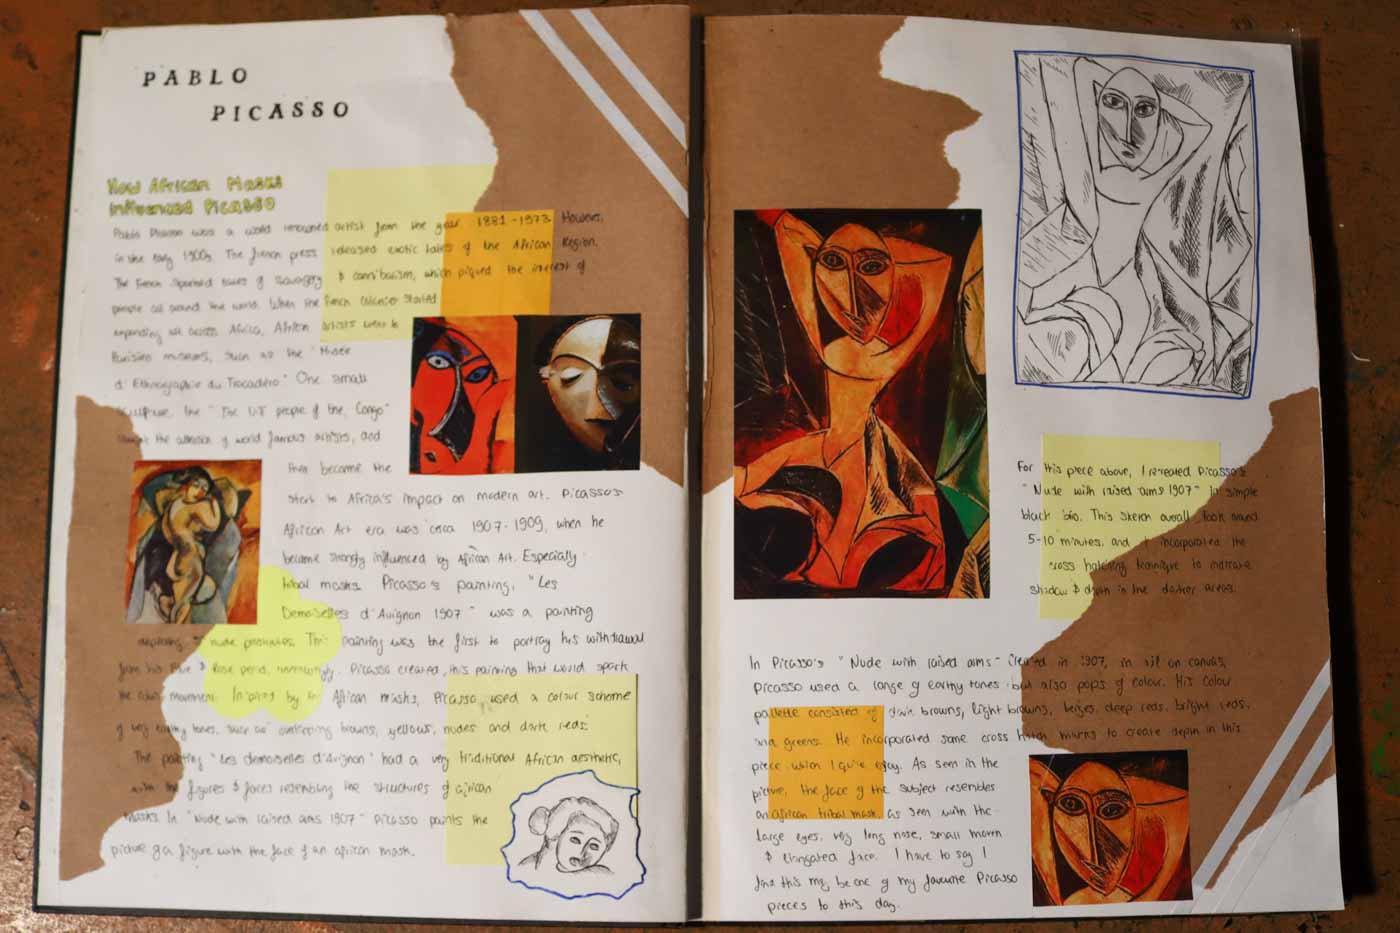 PABLO
PICASSO
How African Masks
Influenced Picasso
Pablo Picasso was a world renowned artist from the year 1881-1973 However,
in the early 1900s. The french press released exotic tales of the African Region.
The French reported tales of savagery & cannibalism, which piqued the interest of
people all around the world. When the French colonies started
expanding all across Africa, African artists went to
Parisian museums, such as the "Musée
d'Ethnographie du Trocadéro" One small
sculpture the "The Vili people of the Congo"
caught the attention of world famous artists, and
then became the
start to Africa's impact on modern art. Picasso's
African Art era was circa 1907-1909, when he
became strongly influenced by African Art. Especially
tribal masks. Picasso's painting, "Les
Demoiselles d'Avignon 1907" was a painting
depicting 5 nude prostitutes. This painting was the first to portray his withdrawal
from his Blue & Rose period, Picasso created this painting that would spark
the cubism movement. Inspired by African masks, Picasso used a colour scheme
of very earthy tones, such as browns, yellows, nudes and dark reds.
The painting "Les demoiselles d'Avignon" had a very traditional African aesthetic,
with the figures & faces resembling the structures of african
masks. In "Nude with raised arms 1907" Picasso paints the
picture of a figure with the face of an african mask.
For this piece above, I recreated Picasso's
"Nude with raised arms 1907" in simple
black bio. This sketch overall took around
5-10 minutes, and I incorporated the
cross hatching technique to indicate
shadow & depth in the darker areas.
In Picasso's "Nude with raised arms" Created in 1907, in oil on canvas,
Picasso used a range of earthy tones but also pops of colour. His colour
pallette consisted of dark browns, light browns, beiges, deep reds, bright reds.
and greens. He incorporated some cross hatch marks to create depth in this
piece which I quite enjoy. As seen in the
picture, the face of the subject resembles
an african tribal mask, as seen with the
large eyes, very long nose, small mouth
& elongated face. I have to say I
find this may be one of my favourite Picasso
pieces to this day.